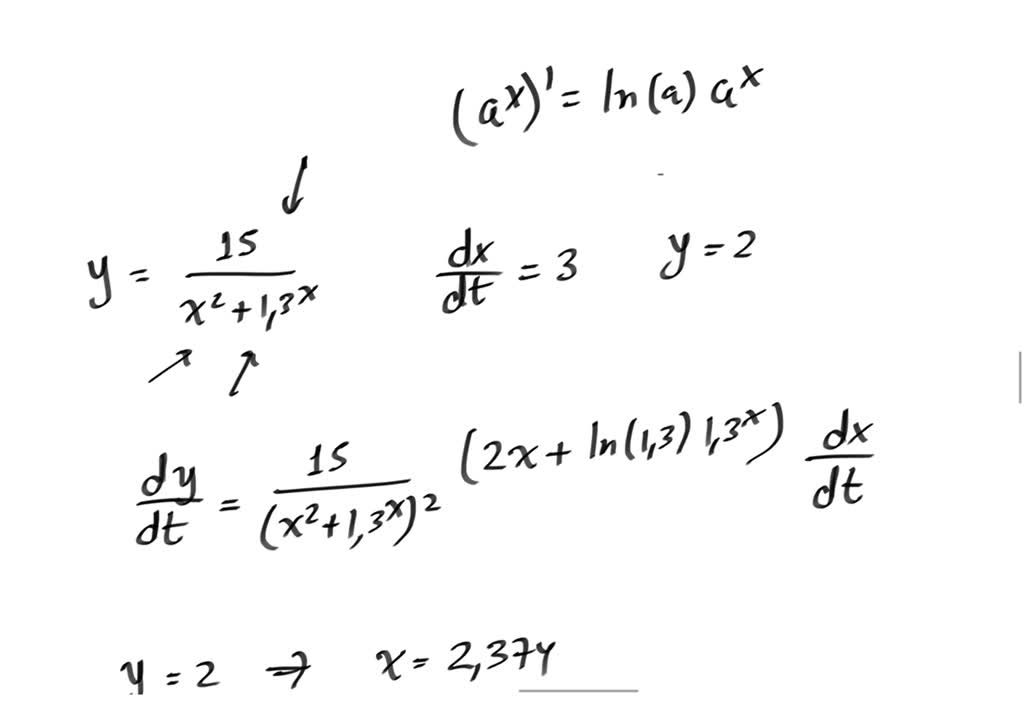 (aˣ)' = ln(a) aˣ
y = 15 / (x² + 1,3ˣ)    dx/dt = 3    y = 2
dy/dt = 15 / (x² + 1,3ˣ)² (2x + ln(1,3) 1,3ˣ) dx/dt
y = 2 → x = 2,374